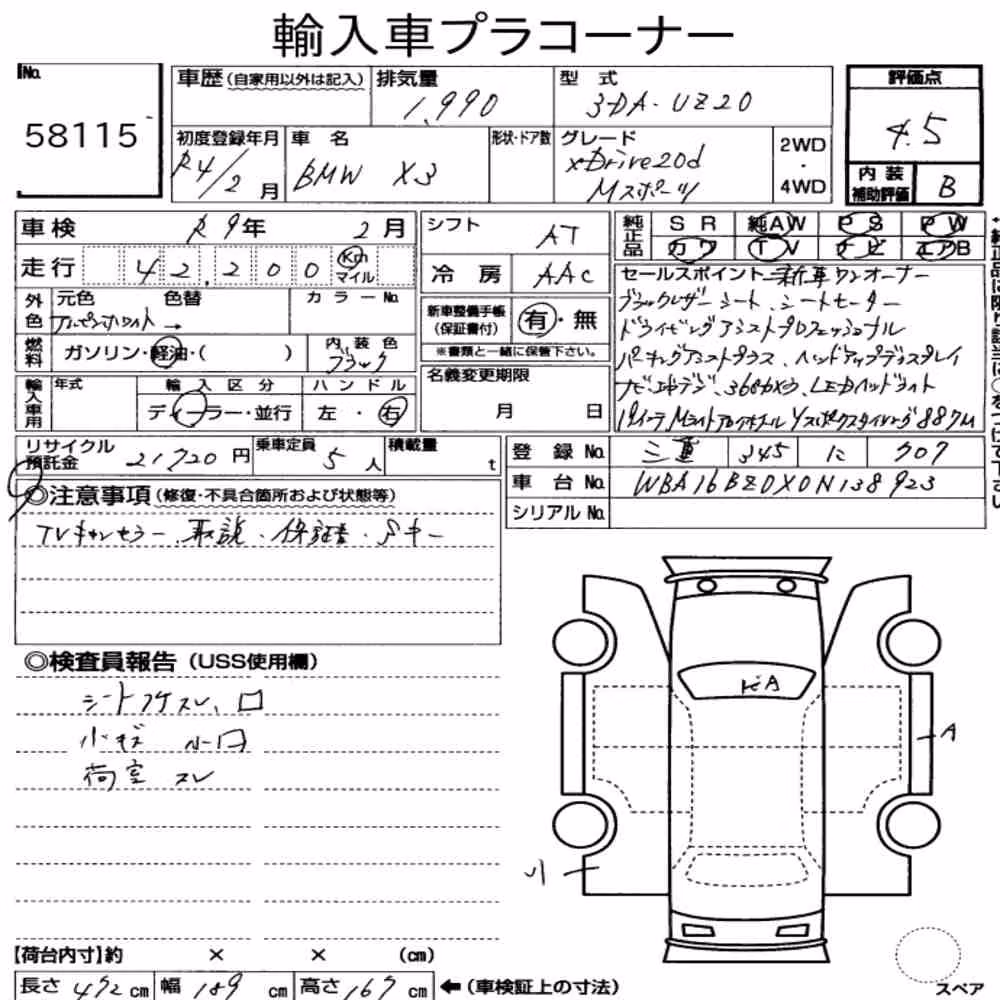 輸入車プラコーナー
No. 58115
車歴(自家用以外は記入) 排気量 1,990 型式 3DA-UZ20
初度登録年月 R4/2月 車名 BMW X3 形状・ドア数 グレード xDrive20d Mスポーツ 2WD・4WD
評価点 4.5
内装補助評価 B
車検 R9年 2月
走行 42,200 Km マイル
シフト AT
冷房 AAC
純正品 SR 純AW PS PW
カワ TV ナビ エアB
外色 元色 色替 カラーNo.
アルピンホワイト→
燃料 ガソリン・軽油・( ) 内装色 ブラック
新車整備手帳(保証書付) 有・無
※書類と一緒に保管下さい。
輸入車用 年式 輸入区分 ディーラー・並行 ハンドル 左・右
名義変更期限 月 日
セールスポイント 新車ワンオーナー
ブラックレザーシート、シートヒーター
ドライビングアシストプロフェッショナル
パーキングアシストプラス、ヘッドアップディスプレイ
ナビ、地デジ、360カメラ、LEDヘッドライト
リサイクル預託金 21720円 乗車定員 5人 積載量 t
登録No. 三重 345 に 707
車台No. WBA16BZ0X0N138923
シリアルNo.
◎注意事項(修復・不具合箇所および状態等)
TVキャンセラー、取説・保証書・Sキー
◎検査員報告(USS使用欄)
シートフケスレ、
小キズ
荷室 スレ
A
A
【荷台内寸】約 × × (cm)
長さ 472cm 幅 189cm 高さ 167cm ←(車検証上の寸法)
スペア